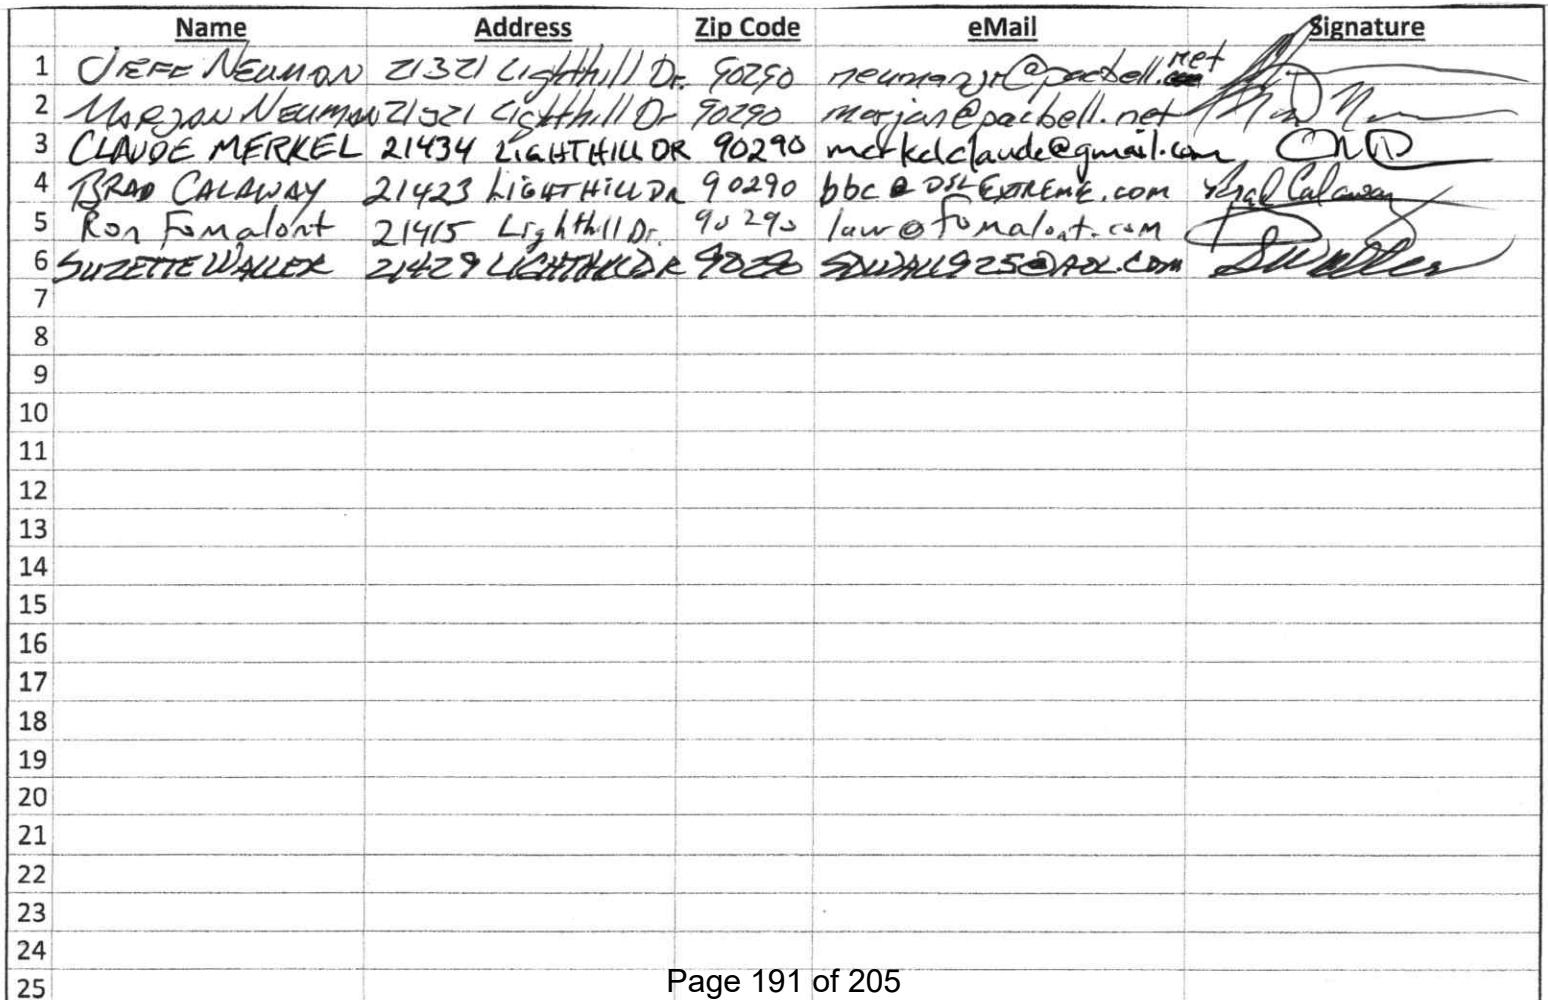 Name Address Zip Code eMail Signature
1 JEFF NEUMAN 21321 Lighthill Dr. 90290 neumanjr@pacbell.net
2 MARJAN NEUMAN 21321 Lighthill Dr 90290 marjan@pacbell.net
3 CLAUDE MERKEL 21434 LIGHTHILL DR 90290 merkelclaude@gmail.com
4 BRAD CALAWAY 21423 LIGHTHILL DR 90290 bbc@DSLEXTREME.com Brad Calaway
5 Ron Fomalont 21415 Lighthill Dr. 90290 law@fomalont.com
6 SUZETTE WALLER 21429 LIGHTHILL DR 90290 SDWALL925@AOL.COM
7
8
9
10
11
12
13
14
15
16
17
18
19
20
21
22
23
24
25
Page 191 of 205